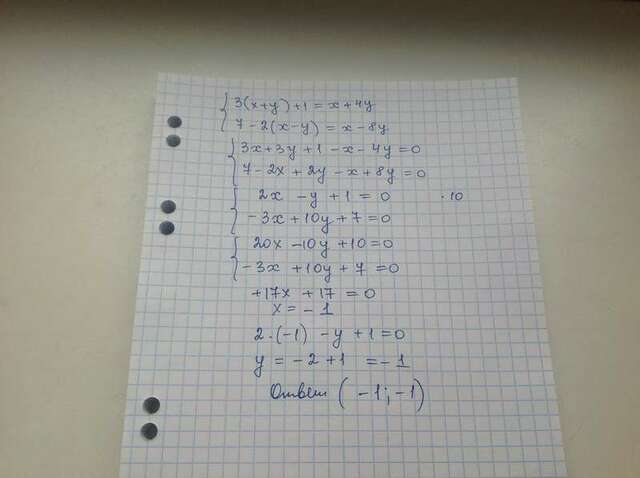 3(x+y)+1 = x+4y
7-2(x-y) = x-8y
3x+3y+1-x-4y=0
7-2x+2y-x+8y=0
2x-y+1=0 ·10
-3x+10y+7=0
20x-10y+10=0
-3x+10y+7=0
+17x+17=0
x=-1
2·(-1)-y+1=0
y=-2+1=-1
Ответ (-1;-1)